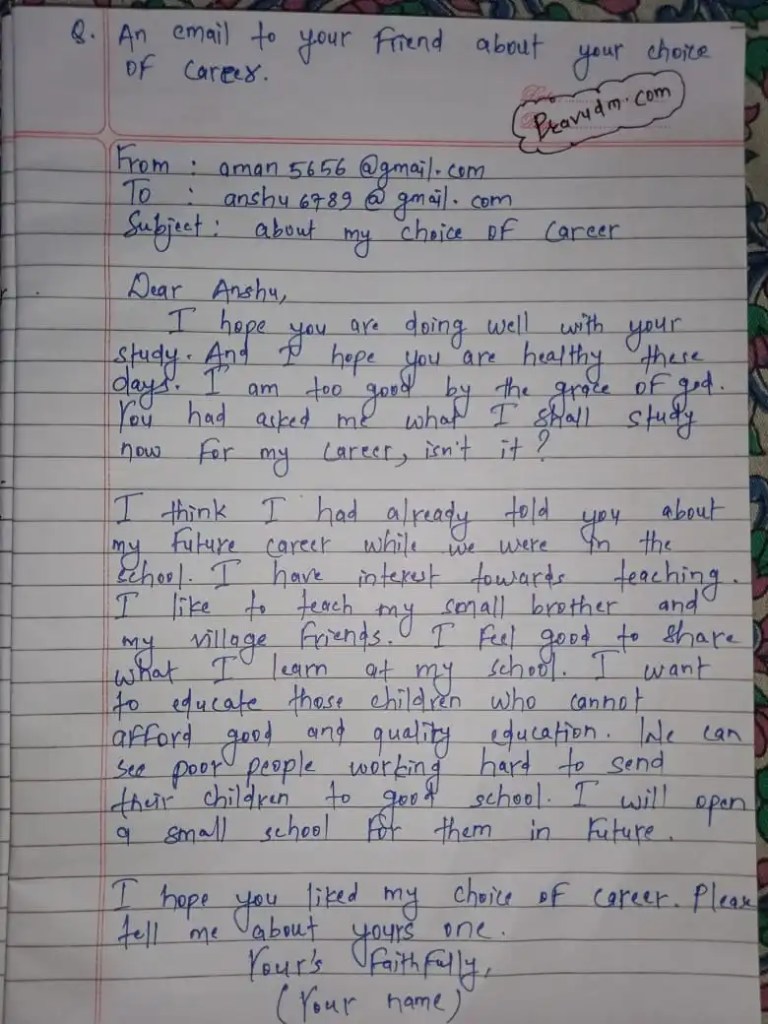 Q. An email to your friend about your choice
of career.
Pravudm.com
From : aman5656@gmail.com
To : anshu6789@gmail.com
Subject : about my choice of career
Dear Anshu,
I hope you are doing well with your
study. And I hope you are healthy these
days. I am too good by the grace of god.
You had asked me what I shall study
now for my career, isn't it?
I think I had already told you about
my future career while we were in the
school. I have interest towards teaching.
I like to teach my small brother and
my village friends. I feel good to share
what I learn at my school. I want
to educate those children who cannot
afford good and quality education. We can
see poor people working hard to send
their children to good school. I will open
a small school for them in future.
I hope you liked my choice of career. Please
tell me about yours one.
Your's faithfully,
(Your name)